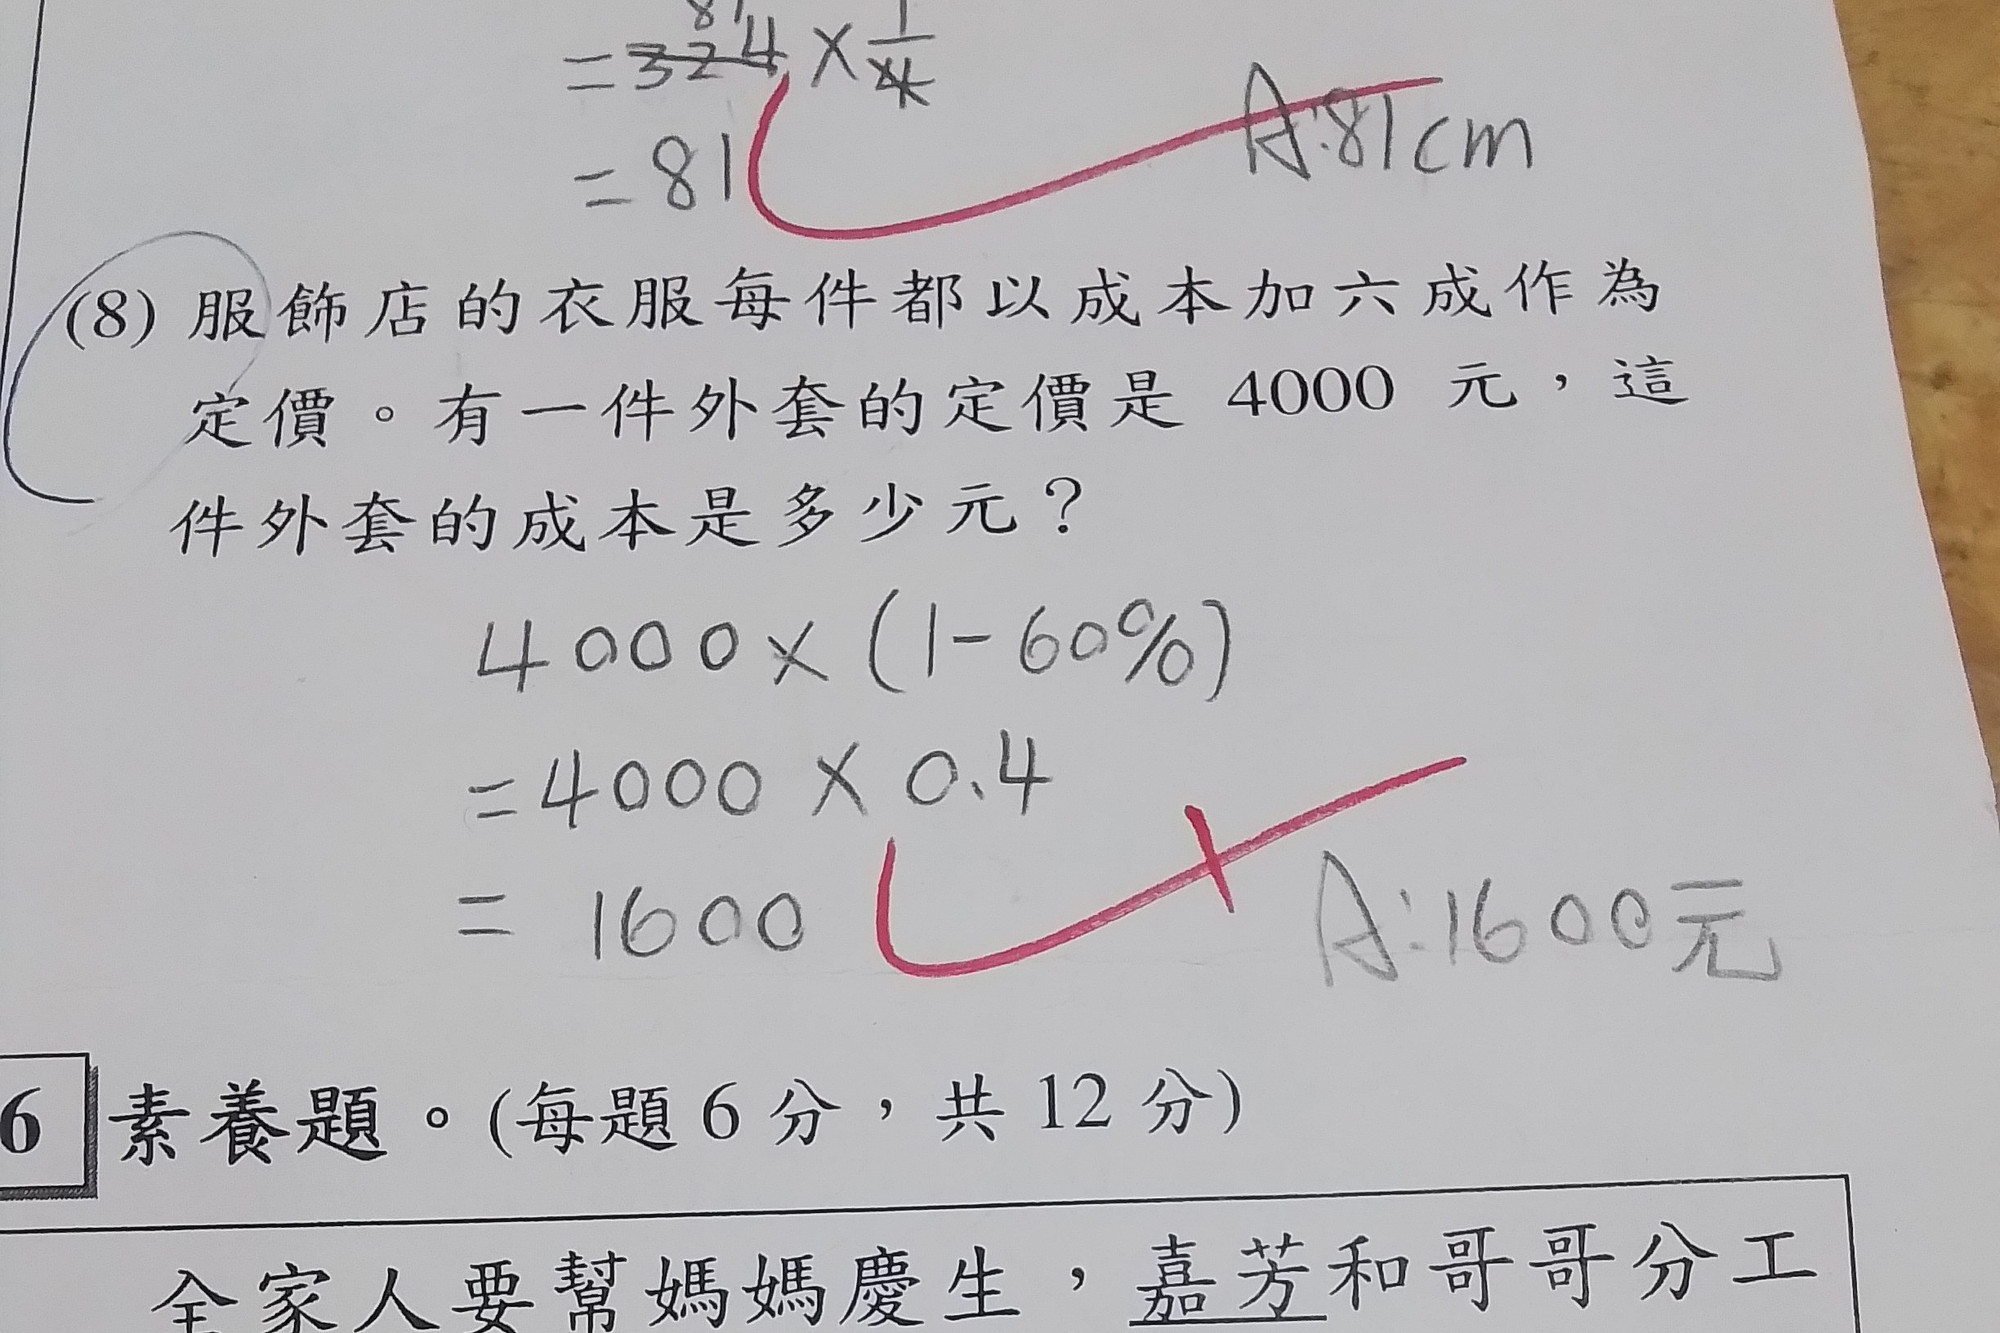 81
= 324 × 1/4
= 81
A:81cm
(8) 服飾店的衣服每件都以成本加六成作為
定價。有一件外套的定價是 4000 元，這
件外套的成本是多少元？
4000 × (1-60%)
= 4000 × 0.4
= 1600
A:1600元
6 素養題。(每題 6 分，共 12 分)
全家人要幫媽媽慶生，嘉芳和哥哥分工